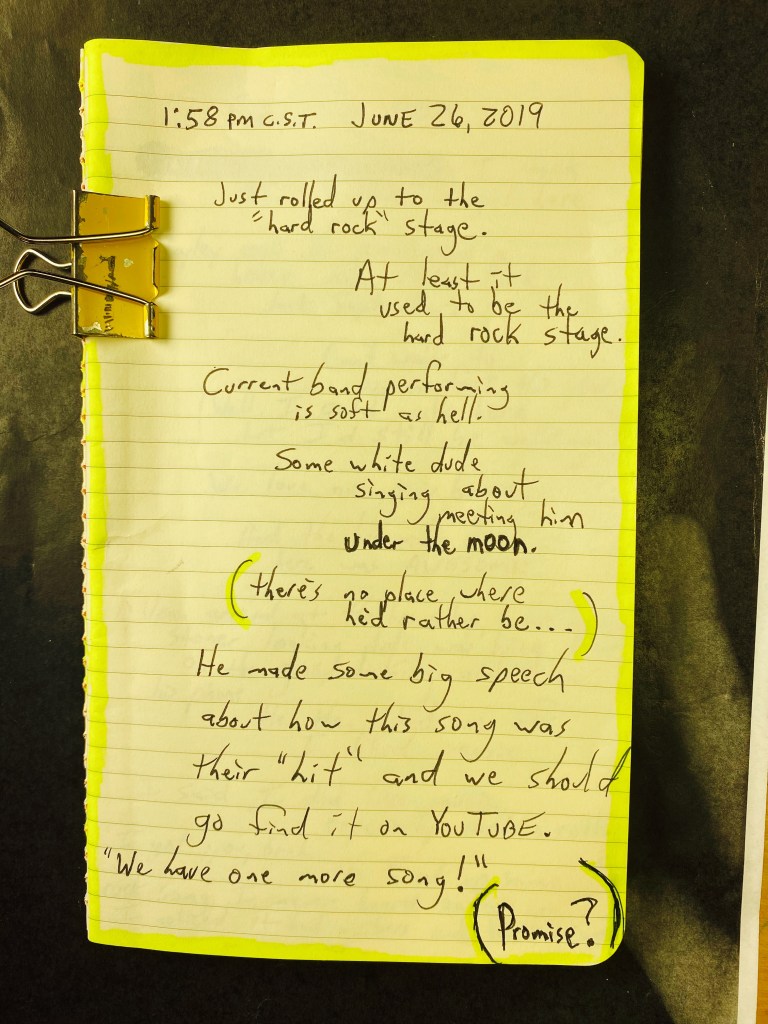 1:58 PM C.S.T. JUNE 26, 2019
Just rolled up to the
"hard rock" stage.
At least it
used to be the
hard rock stage.
Current band performing
is soft as hell.
Some white dude
singing about
meeting him
under the moon.
(there's no place where
he'd rather be...)
He made some big speech
about how this song was
their "hit" and we should
go find it on YOUTUBE.
"We have one more song!"
(Promise?)